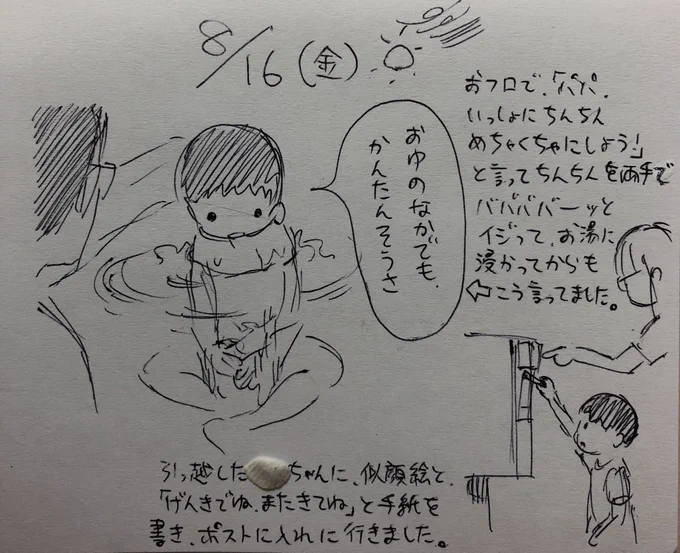 8/16(金)
おフロで、「パパ、
いっしょにちんちん
めちゃくちゃにしよう!」
と言ってちんちんを両手で
バババババーッと
イジって、お湯に
浸かってからも
⇦こう言ってました。
おゆのなかでも、
かんたんそうさ
引っ越した ちゃんに、似顔絵と、
「げんきでね、またきてね」と手紙を
書き、ポストに入れに行きました。